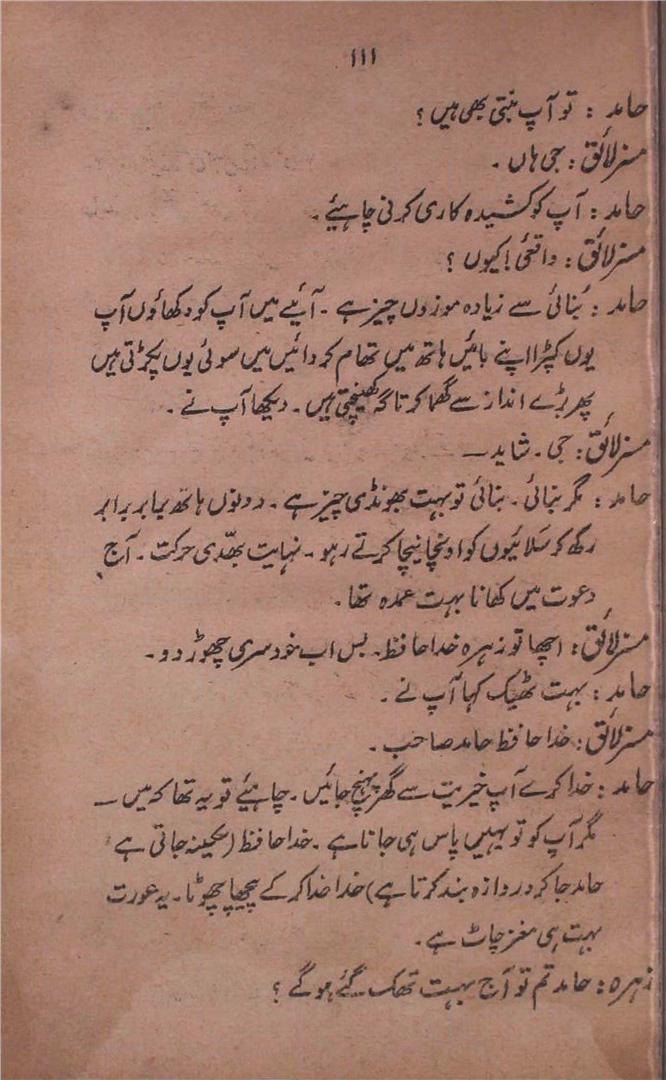 ۱۱۱
حامد : تو آپ بنتی بھی ہیں ؟
مسز لائق : جی ہاں ۔
حامد : آپ کو کشیدہ کاری کرنی چاہیئے ۔
مسز لائق : واقعی ! کیوں ؟
حامد : بُنائی سے زیادہ موزوں چیز ہے ۔ آیئے میں آپ کو دکھاؤں آپ
یوں کپڑا اپنے بائیں ہاتھ میں تھام کر دائیں میں سوئی یوں پکڑتی ہیں
پھر بڑے انداز سے گھما کر تاگہ کھینچتی ہیں ۔ دیکھا آپ نے ۔
مسز لائق : جی ۔ شاید ــ
حامد : مگر بنائی ۔ بنائی تو بہت بھونڈی چیز ہے ۔ دونوں ہاتھ برابر برابر
رکھ کر سَلائیوں کو اونچا نیچا کرتے رہو ۔ نہایت بھدّی حرکت ۔ آج
دعوت میں کھانا بہت عمدہ تھا ۔
مسز لائق : اچھا تو زہرہ خدا حافظ ۔ بس اب خود سری چھوڑ دو ۔
حامد : بہت ٹھیک کہا آپ نے ۔
مسز لائق : خدا حافظ حامد صاحب ۔
حامد : خدا کرے آپ خیریت سے گھر پہنچ جائیں ۔ چاہیئے تو یہ تھا کہ میں ــ
مگر آپ کو تو یہیں پاس ہی جانا ہے ۔ خدا حافظ ( سکینہ جاتی ہے
حامد جا کر دروازہ بند کرتا ہے ) خدا خدا کر کے پیچھا چھوٹا ۔ یہ عورت
بہت ہی مغز چاٹ ہے ۔
زہرہ : حامد تم تو آج بہت تھک گئے ہو گے ؟